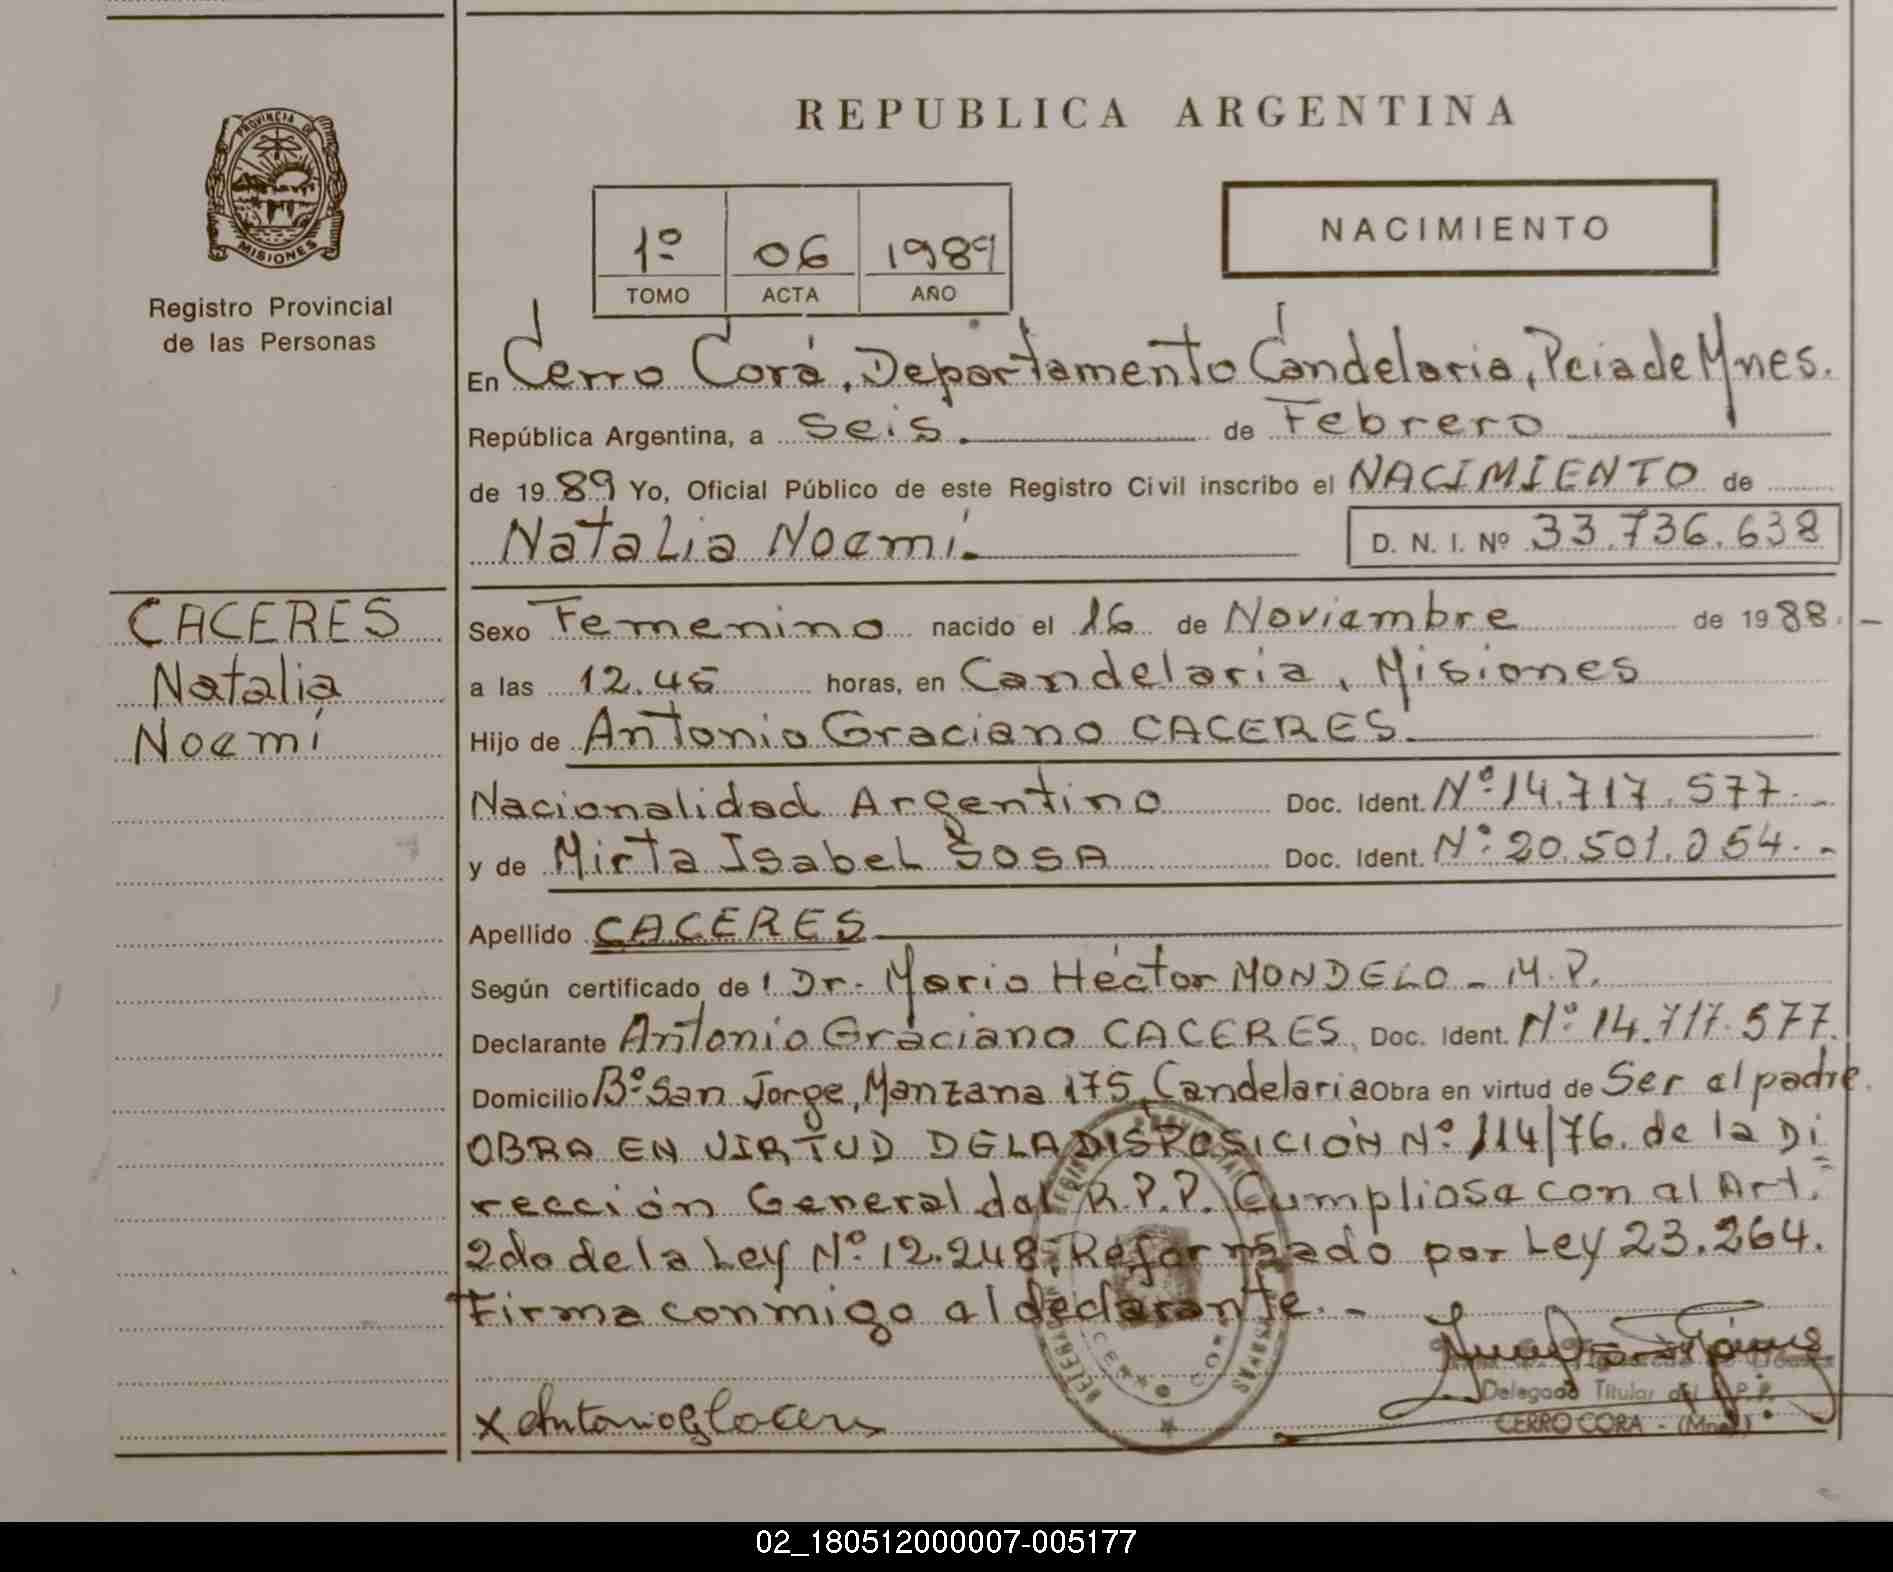 REPUBLICA ARGENTINA
PROVINCIA DE
MISIONES
Registro Provincial
de las Personas
1º 06 1989
TOMO ACTA AÑO
NACIMIENTO
En Cerro Corá, Departamento Candelaria, Pcia de Mnes.
República Argentina, a Seis. de Febrero
de 1989 Yo, Oficial Público de este Registro Civil inscribo el NACIMIENTO de
Natalia Noemí. D. N. I. Nº 33.736.638
CACERES
Natalia
Noemí
Sexo Femenino nacido el 16 de Noviembre de 1988.-
a las 12.45 horas, en Candelaria, Misiones
Hijo de Antonio Graciano CACERES.
Nacionalidad Argentino Doc. Ident. Nº 14.717.577.-
y de Mirta Isabel SOSA Doc. Ident. Nº 20.501.054.-
Apellido CACERES
Según certificado de l Dr. Mario Héctor MONDELO - M.P.
Declarante Antonio Graciano CACERES, Doc. Ident. Nº 14.717.577.
Domicilio Bº San Jorge, Manzana 175, Candelaria Obra en virtud de Ser el padre.
OBRA EN VIRTUD DE LA DISPOSICIÓN Nº 114/76. de la Di
rección General del R.P.P. Cumpliose con el Art.
2do de la Ley Nº 12.248, Reformado por Ley 23.264.
Firma conmigo el declarante.-
x Antonio G Caceres
Delegado Titular del R.P.P.
CERRO CORA - (Mnes.)
02_180512000007-005177